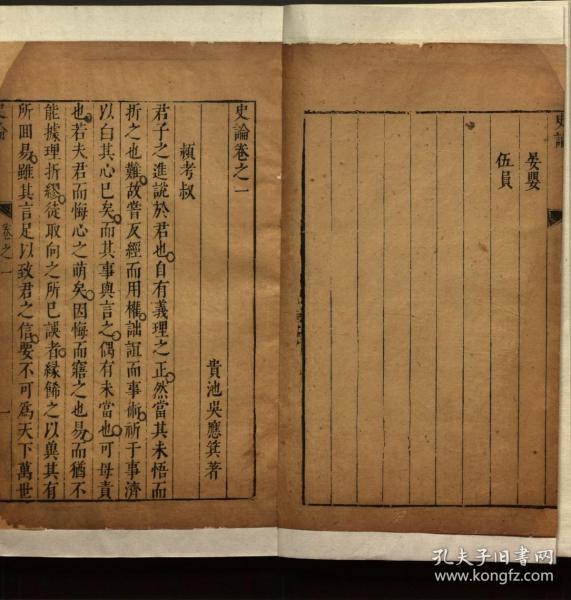 史論
晏嬰
伍員
史論卷之一
貴池吳應箕著
頴考叔
君子之進說於君也自有義理之正然當其未悟而
折之也難故嘗反經而用權詘誼而事術祈于事濟
以白其心已矣而其事與言之偶有未當也可毋責
也若夫君而悔心之萌矣因悔而寤之也易而猶不
能據理折繆徒取向之所已誤者緣餙之以兾其有
所回易雖其言足以致君之信要不可爲天下萬世
史論
卷之一
一
孔夫子旧书网
www.kongfz.com